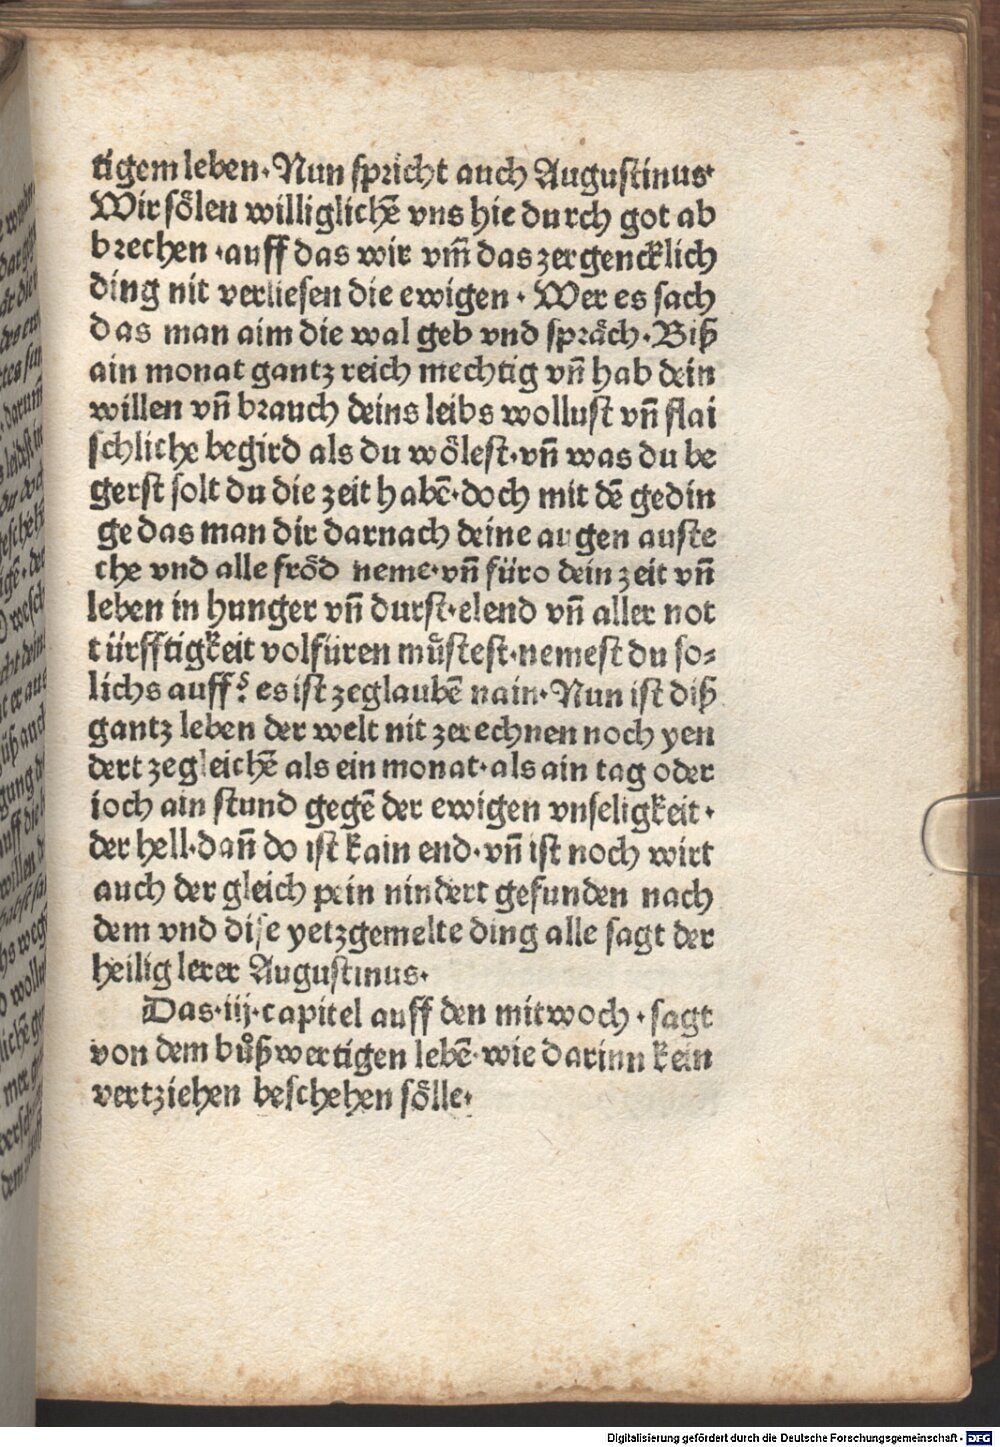 tigem leben·Nun spricht auch Augustinus·
Wir sölen williglichē vns hie durch got ab
brechen·auff das wir vm̄ das zergencklich
ding nit verliesen die ewigen·Wer es sach
das man aim die wal geb vnd spräch·Biß
ain monat gantz reich mechtig vn̄ hab dein
willen vn̄ brauch deins leibs wollust vn̄ flai
schliche begird als du wölest·vn̄ was du be
gerst solt du die zeit habē·doch mit dē gedin
ge das man dir darnach deine augen auste
che vnd alle fröd neme·vn̄ füro dein zeit vn̄
leben in hunger vn̄ durst·elend vn̄ aller not
türfftigkeit volfüren mu̇̊stest·nemest du so⸗
lichs auff? es ist zeglaubē nain·Nun ist diß
gantz leben der welt nit zerechnen noch yen
dert zegleichē als ein monat·als ain tag oder
ioch ain stund gegē der ewigen vnseligkeit·
der hell·dan̄ do ist kain end·vn̄ ist noch wirt
auch der gleich pein nindert gefunden nach
dem vnd dise yetzgemelte ding alle sagt der
heilig lerer Augustinus·
Das·iij·capitel auff den mitwoch·sagt
von dem bůßwertigen lebē·wie darinn kein
vertziehen beschehen sölle·
Digitalisierung gefördert durch die Deutsche Forschungsgemeinschaft - DFG